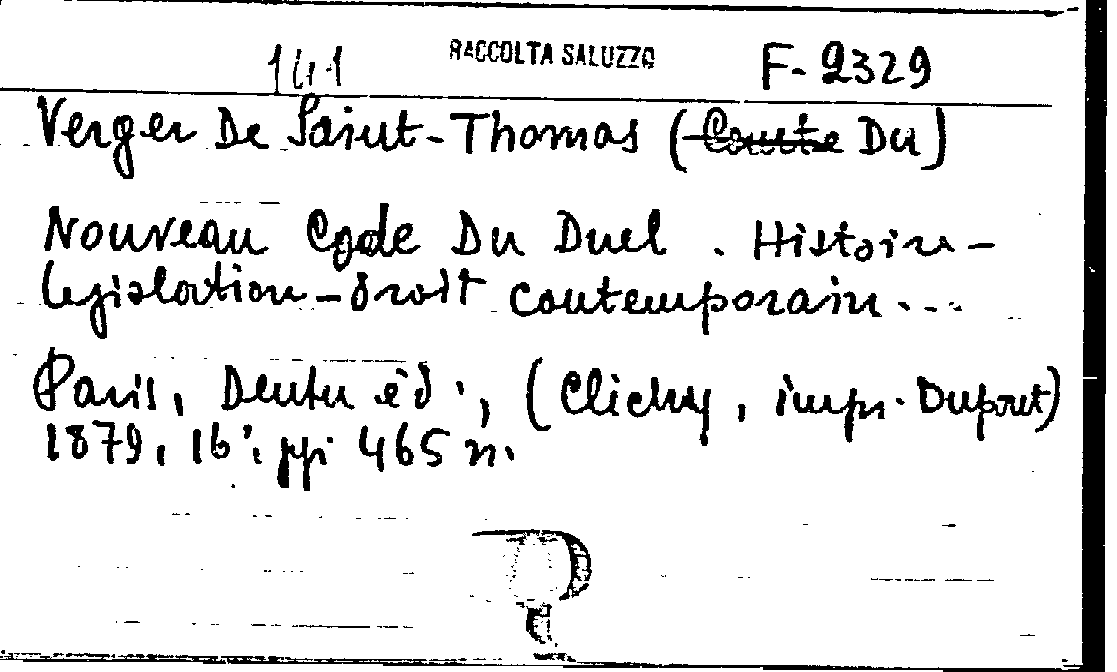 141 RACCOLTA SALUZZO F-2329
Verger De Saint-Thomas (Comte Du)
Nouveau Code Du Duel . Histoire -
législation - droit contemporain ...
Paris, Dentu éd., (Clichy, impr. Dupont)
1879, 16°, pp. 465 n.